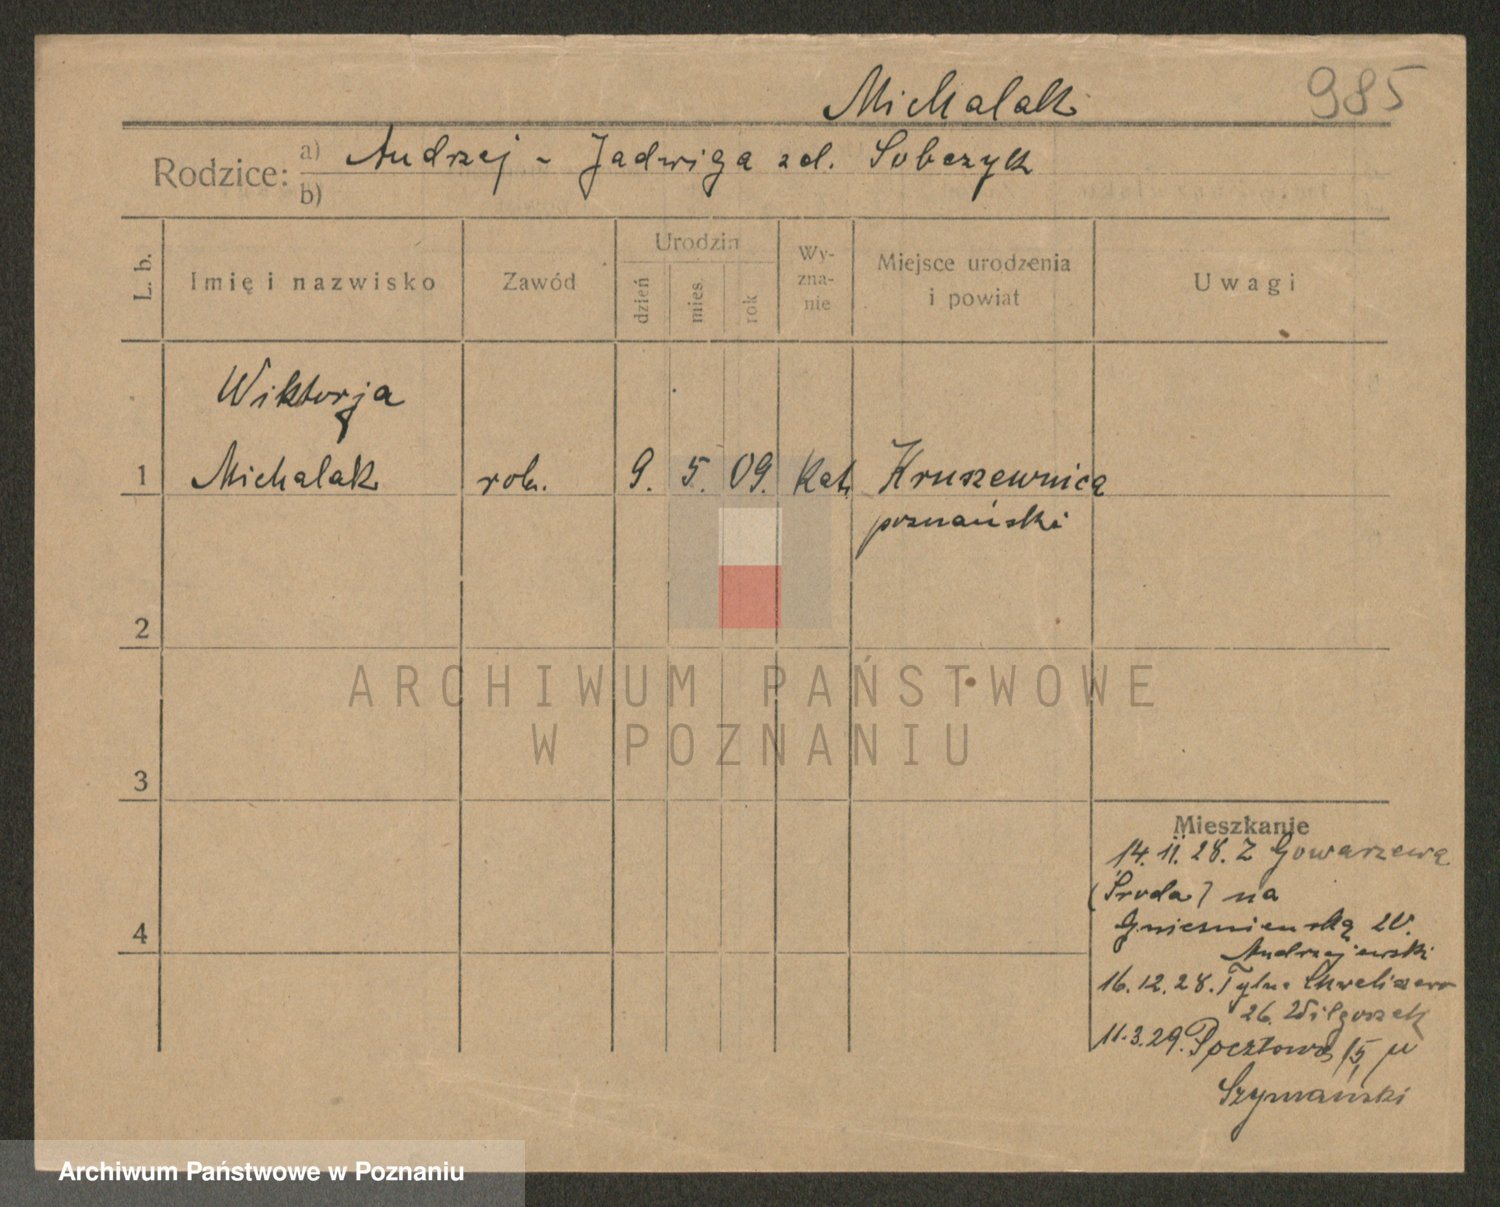 Michalak 985
Rodzice: a) Andrzej - Jadwiga zd. Sobczyk
b)
L. b. Imię i nazwisko Zawód Urodzin dzień mies rok Wy-zna-nie Miejsce urodzenia i powiat Uwagi
Wiktorja
1 Michalak rob. 9. 5. 09. Kat. Kruszewnica
poznański
2
ARCHIWUM PAŃSTWOWE
W POZNANIU
3
Mieszkanie
14.11.28. Z Gowarzewa
(Środa) na
4 Gnieźnieńską 20.
Andrzejewski
16.12.28. Tylne Chwaliszewo
26.
11.3.29. Pocztowa 15,
Szymański
Archiwum Państwowe w Poznaniu